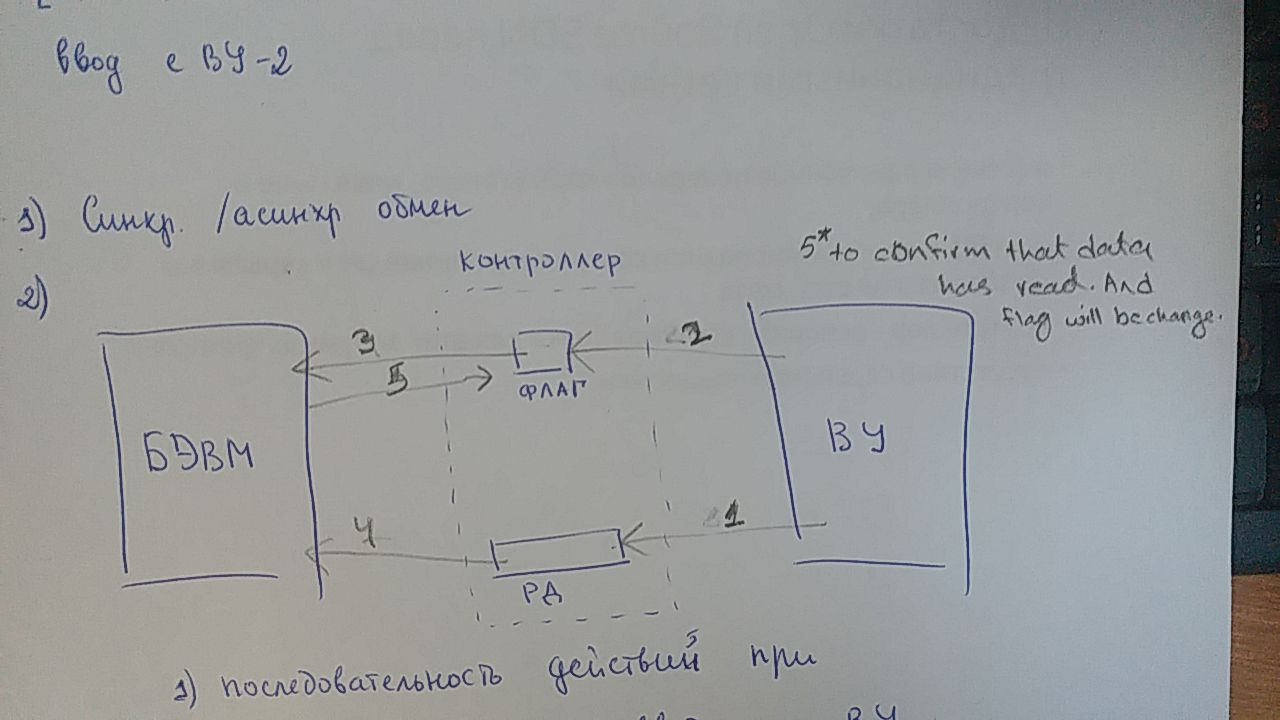 ввод с ВУ-2
1) Синхр. /асинхр обмен
2)
контроллер
5* to confirm that data
has read. And
flag will be change.
3
2
5
ФЛАГ
БЭВМ
ВУ
4
1
РД
1) последовательность действий при
ВУ